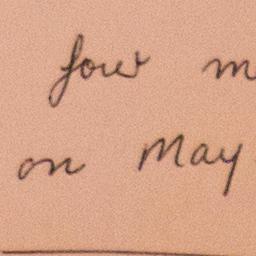 four m
on May